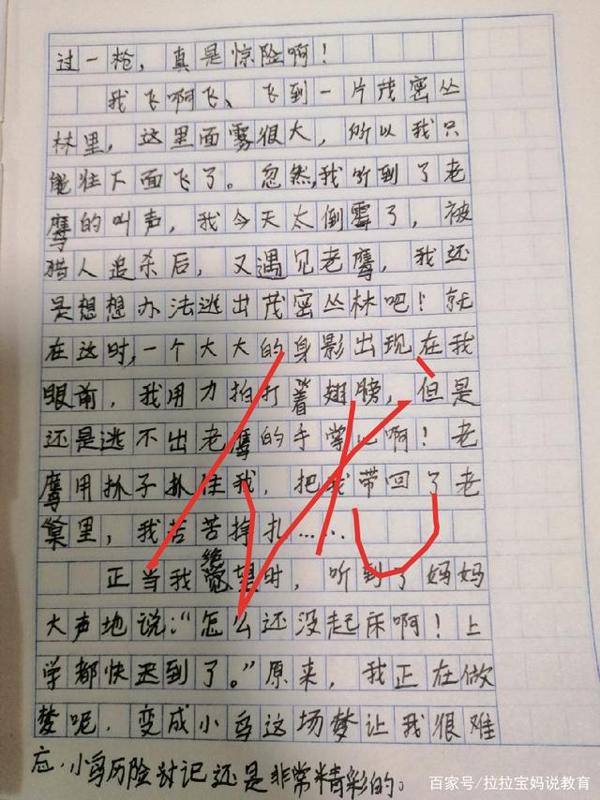 过一枪，真是惊险啊！
我飞啊飞、飞到一片茂密丛
林里，这里面雾很大，所以我只
能往下面飞了。忽然，我听到了老
鹰的叫声，我今天太倒霉了，被
猎人追杀后，又遇见老鹰，我还
是想想办法逃出茂密丛林吧！就
在这时，一个大大的身影出现在我
眼前，我用力拍打着翅膀，但是
还是逃不出老鹰的手掌心啊！老
鹰用抓子抓住我，把我带回了老
巢里，我苦苦掉扎……
正当我绝望时，听到了妈妈
大声地说：“怎么还没起床啊！上
学都快迟到了。”原来，我正在做
梦呢，变成小鸟这场梦让我很难
忘，小鸟历险记还是非常精彩的。
百家号/拉拉宝妈说教育